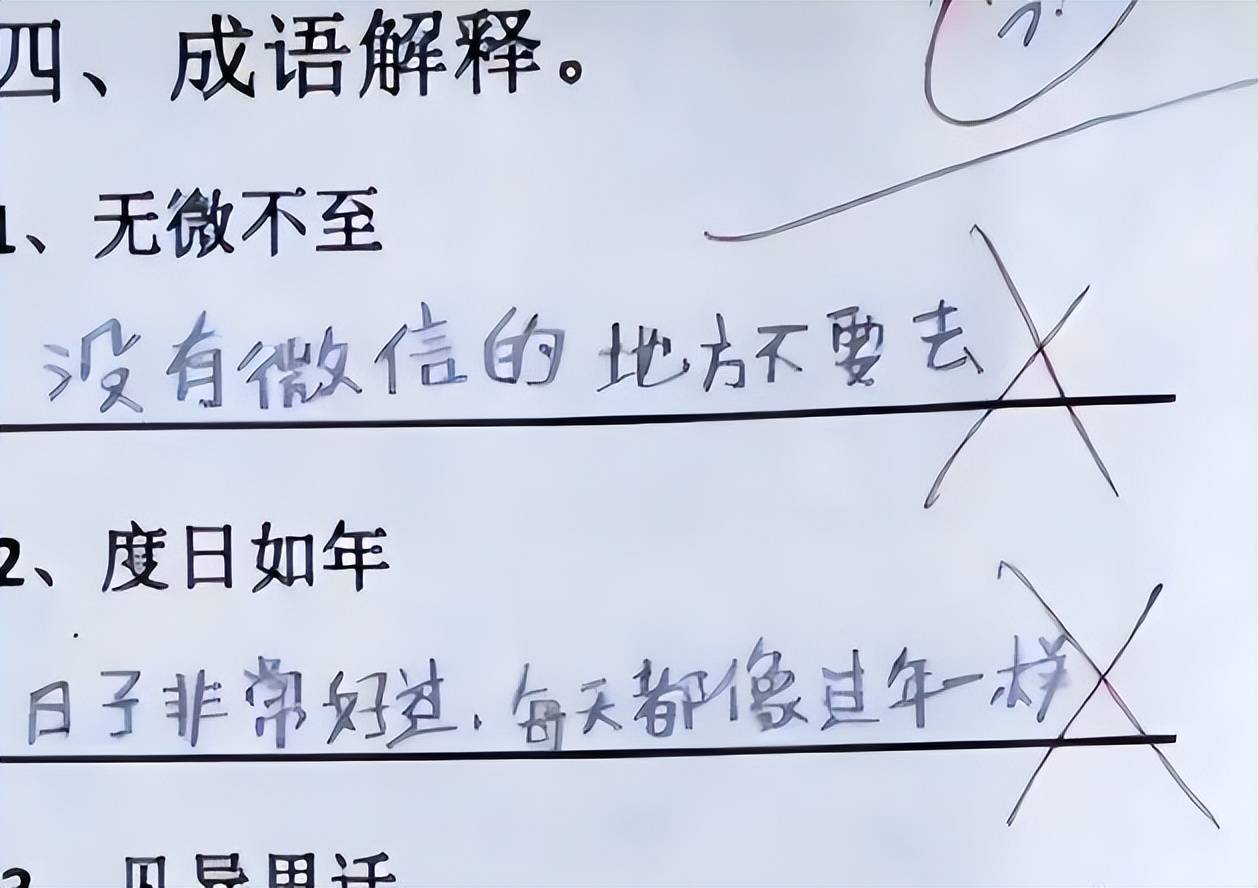 四、成语解释。
1、无微不至
没有微信的地方不要去
2、度日如年
日子非常好过.每天都像过年一样
3、见异思迁